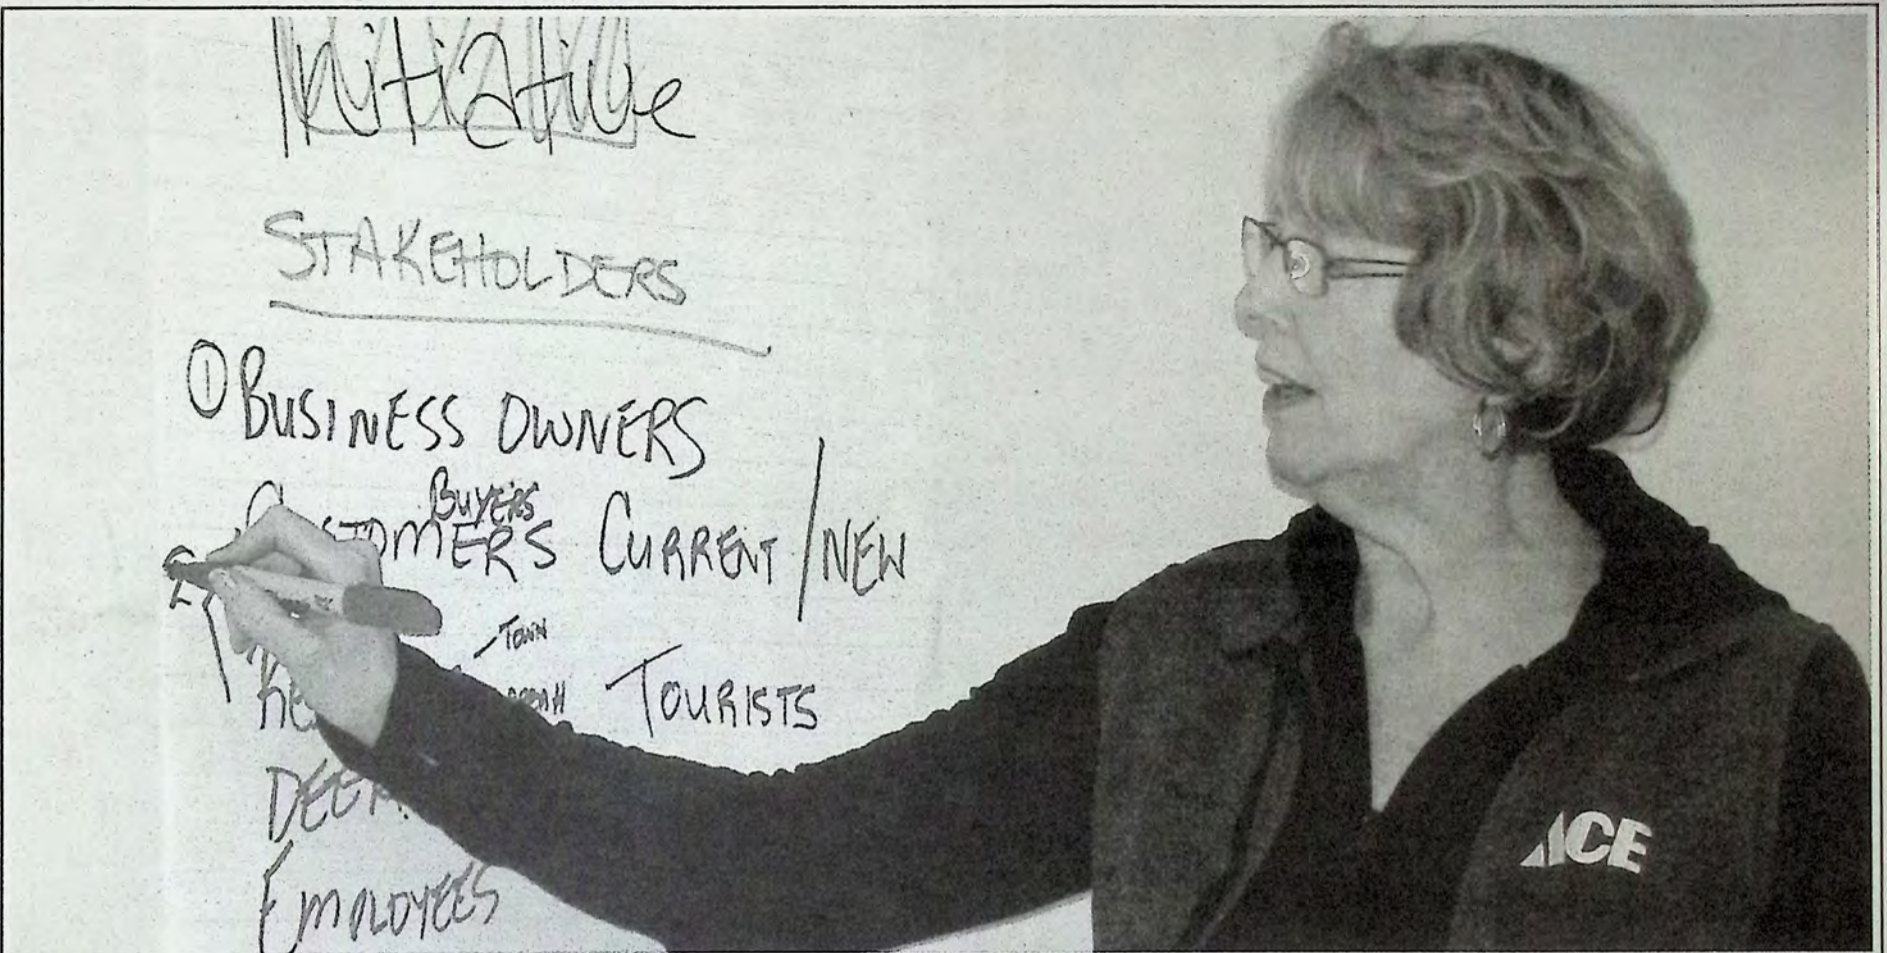 Initiative
STAKEHOLDERS
① BUSINESS OWNERS
BUYERS
CUSTOMERS CURRENT/NEW
2
TOWN
TOURISTS
EMPLOYEES
ACE